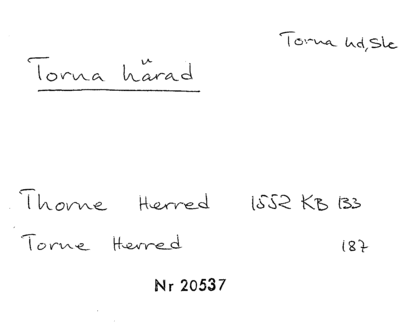 Torna hd, Sk
Torna härad
Thorne Herred 1552 KB 133
Torne Herred 187
Nr 20537